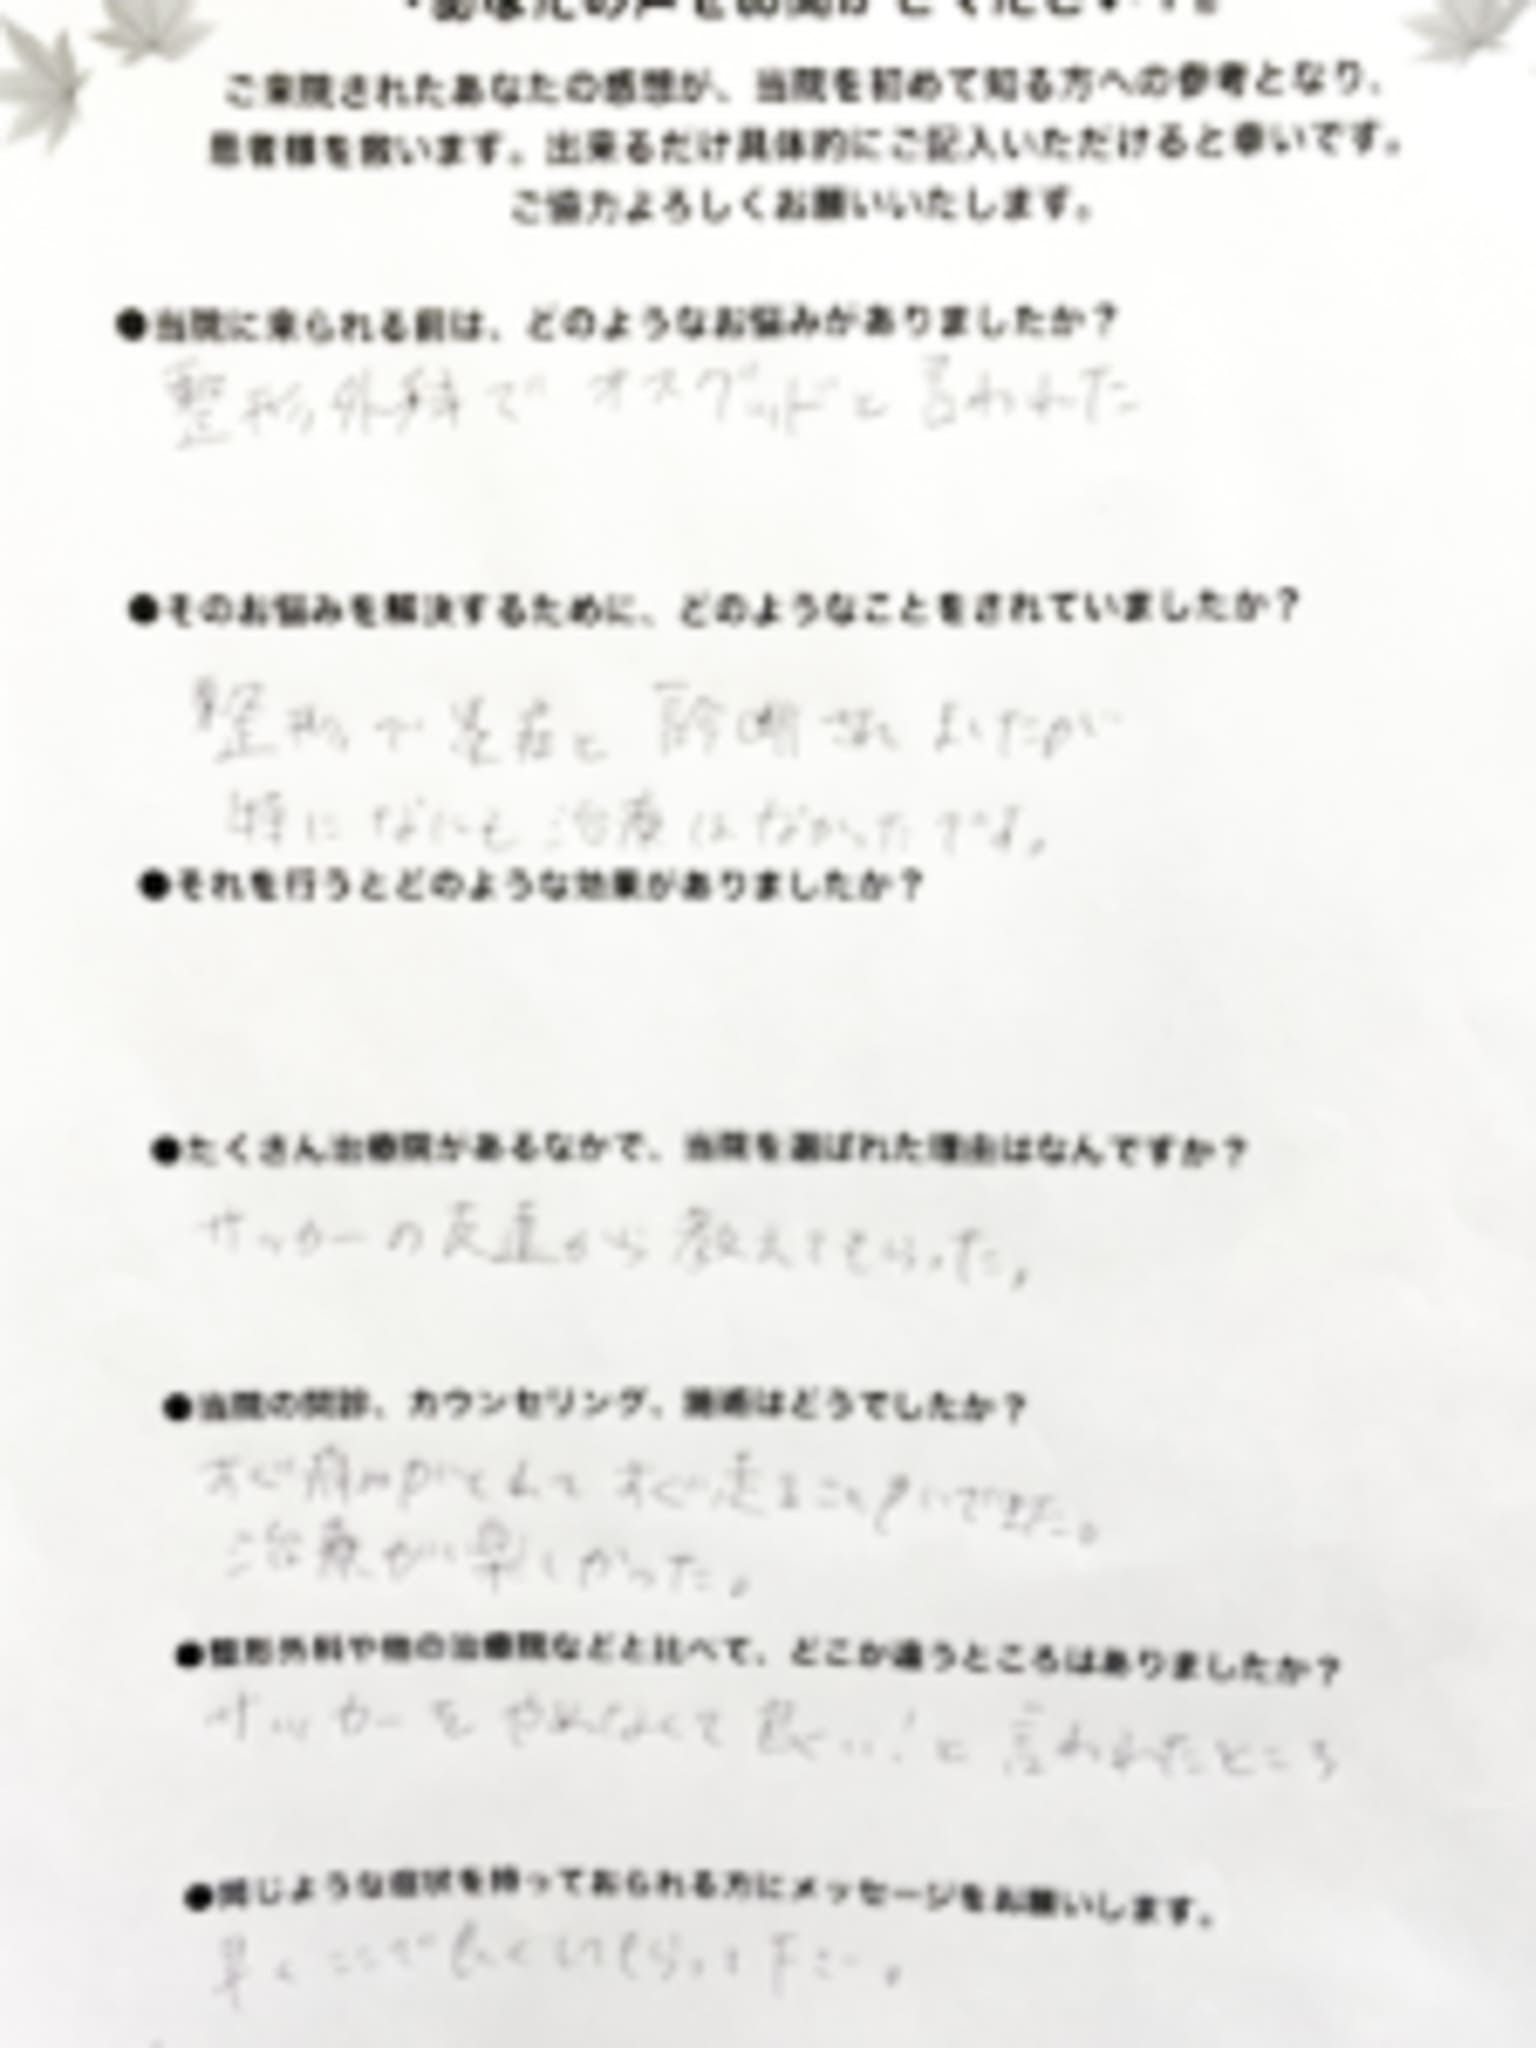 ご来院されたあなたの感想が、当院を初めて知る方への参考となり、
患者様を救います。出来るだけ具体的にご記入いただけると幸いです。
ご協力よろしくお願いいたします。
●当院に来られる前は、どのようなお悩みがありましたか？
整形外科で オスグッドと言われた
●そのお悩みを解決するために、どのようなことをされていましたか？
整形で と 診断されましたが
特になにも治療はなかったです。
●それを行うとどのような効果がありましたか？
●たくさん治療院があるなかで、当院を選ばれた理由はなんですか？
サッカーの友達から教えてもらった。
●当院の問診、カウンセリング、施術はどうでしたか？
すぐ痛みがとれて すぐ走ることができた。
治療が楽しかった。
●整形外科や他の治療院などと比べて、どこか違うところはありましたか？
サッカーをやめなくて良い!と言われたところ
●同じような症状を持っておられる方にメッセージをお願いします。
早くここで良くしてもらって下さい。